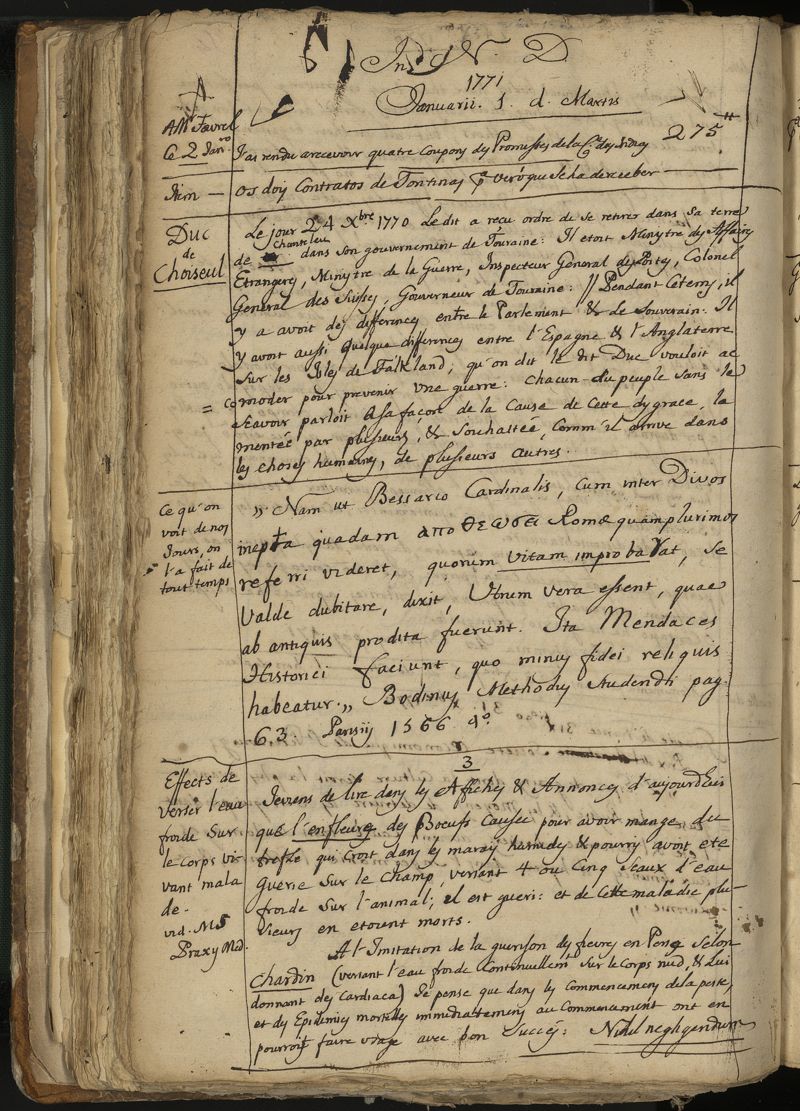 In 𝒟 N. D.
1771
Januarii. 1. d. Martis
A Mr Favrel
Ce 2 Janro
J'ai rendu a recevoir quatre Coupons des Promesses de la Cie des Indes 275tt
Item — Os dois Contratos de Tontinas
Duc
de
Choiseul
Le jour 24 Xbre 1770 Le dit a reçu ordre de se retirer dans sa terre
de Chanteleu dans son gouvernement de Touraine: Il etoit Ministre des Affaires
Etrangeres, Ministre de la Guerre, Inspecteur General des Postes, Colonel
General des Suisses, Gouverneur de Touraine: // Pendant ce tems, il
y a avoit des differences entre le Parlement & Le Souverain. Il
y avoit aussi quelque differences entre l'Espagne & l'Angleterre
sur les Isles de Falkland, qu'on dit le dit Duc vouloit ac
= comoder pour prevenir une guerre: chacun du peuple sans le
sçavoir parloit a sa façon de la Cause de cette disgrace, la
mentée par plusieurs, & souhaitée, comm'il arrive dans
les choses humaines, de plusieurs autres.
Ce qu'on
voit de nos
Jours, on
l'a fait de
tout temps
„ Nam ut Bessario Cardinalis, cum inter Divos
inepta quadam αποθεωσει Romæ quamplurimos
referri videret, quorum vitam improbarat, se
valde dubitare, dixit, Utrum vera essent, quae
ab antiquis prodita fuerunt. Ita Mendaces
Historici faciunt, quo minus fidei reliquis
habeatur. „ Bodinus, Methodus studendi pag.
63. Parisiis 1566 4o.
3
Effects de
verser l'eau
froide sur
le corps vi-
vant mala
de.
vid. MS
Praxis Med.
Je viens de lire dans les Affiches & Annonces d'aujourdhui
que l'enfleure des Boeufs causée pour avoir mangé du
trefle qui croit dans les marais humides & pourris avoit eté
guerie sur le champ, versant 4 ou cinq seaux d'eau
froide sur l'animal; il est gueri: et de cette maladie plu-
sieurs en etoient morts.
A l'Imitation de la guerison des fievres en Perse selon
Chardin (versant l'eau froide continuellement sur le corps nud, & lui
donnant des Cardiaca) Je pense que dans les commencemens de la peste,
et des Epidemies mortelles immediatement au Commencement ont en
pourroit faire usage avec bon succes: Nihil negligendum